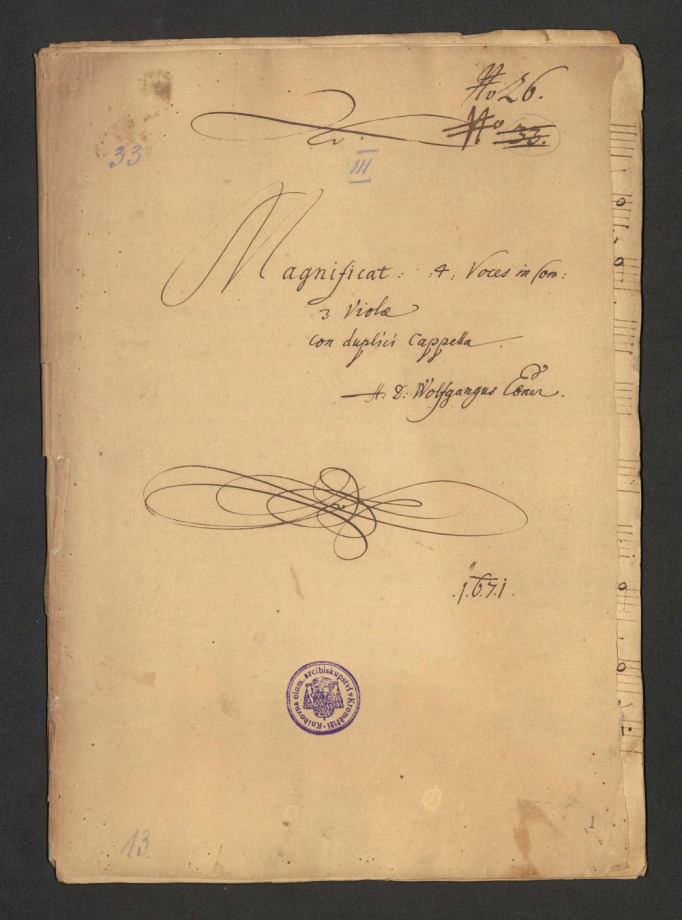 No 26.
No 33.
33
III
Magnificat: 4: Voces in Con:
3 Violæ
con duplici Cappella
A: D: Wolfgangus Ebner.
1671.
Knihovna olom. arcibiskupství v Kroměříži
13
1